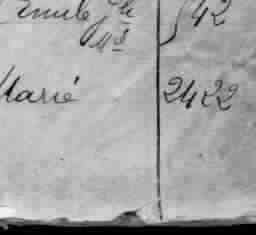 Emile 42
Marié 2422